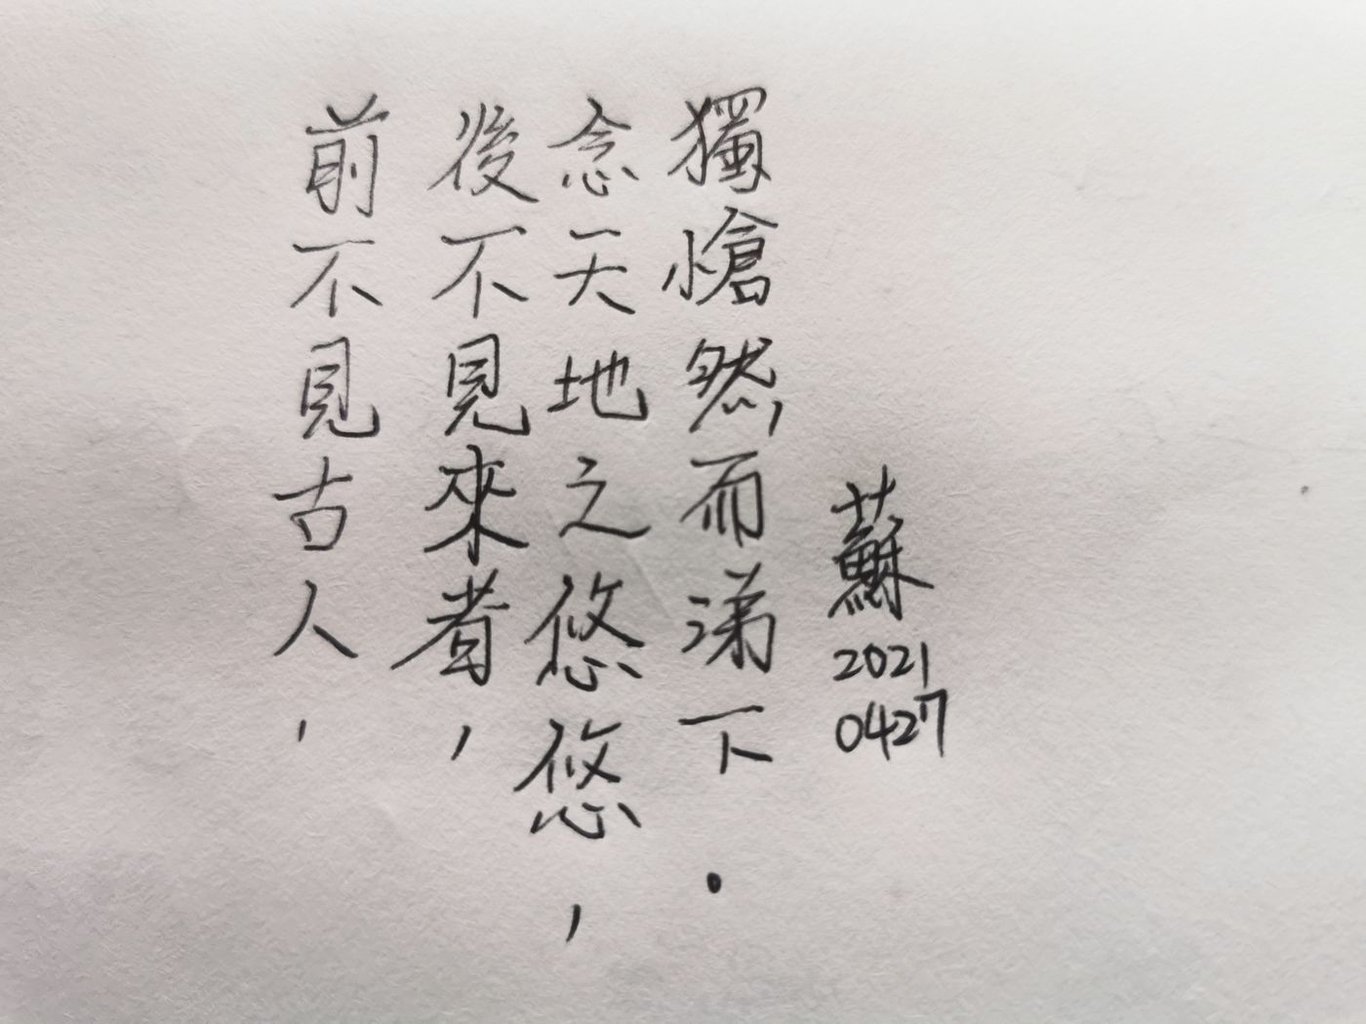 前不見古人，
後不見來者，
念天地之悠悠，
獨愴然而涕下．
蘇
2021
0427